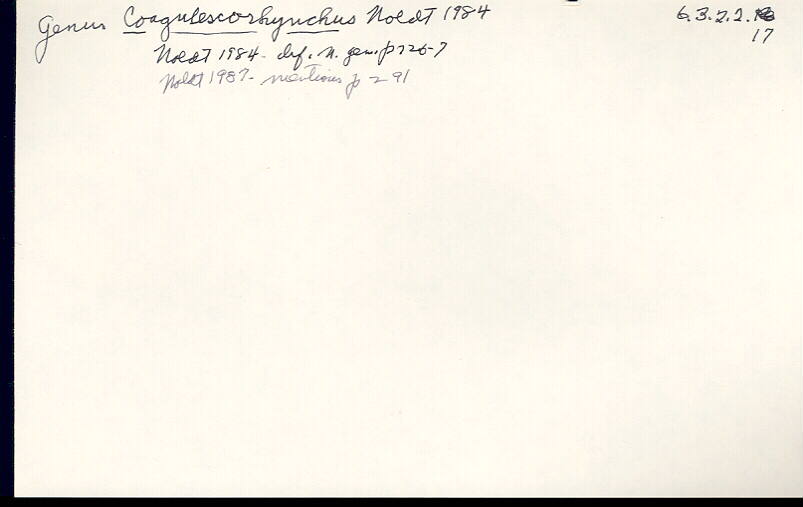 Genus Coagulescorhynchus Noldt 1984 6.3.2.2.
17
Noldt 1984 - def. n. gen. p 726-7
Noldt 1987 - mentions p 291